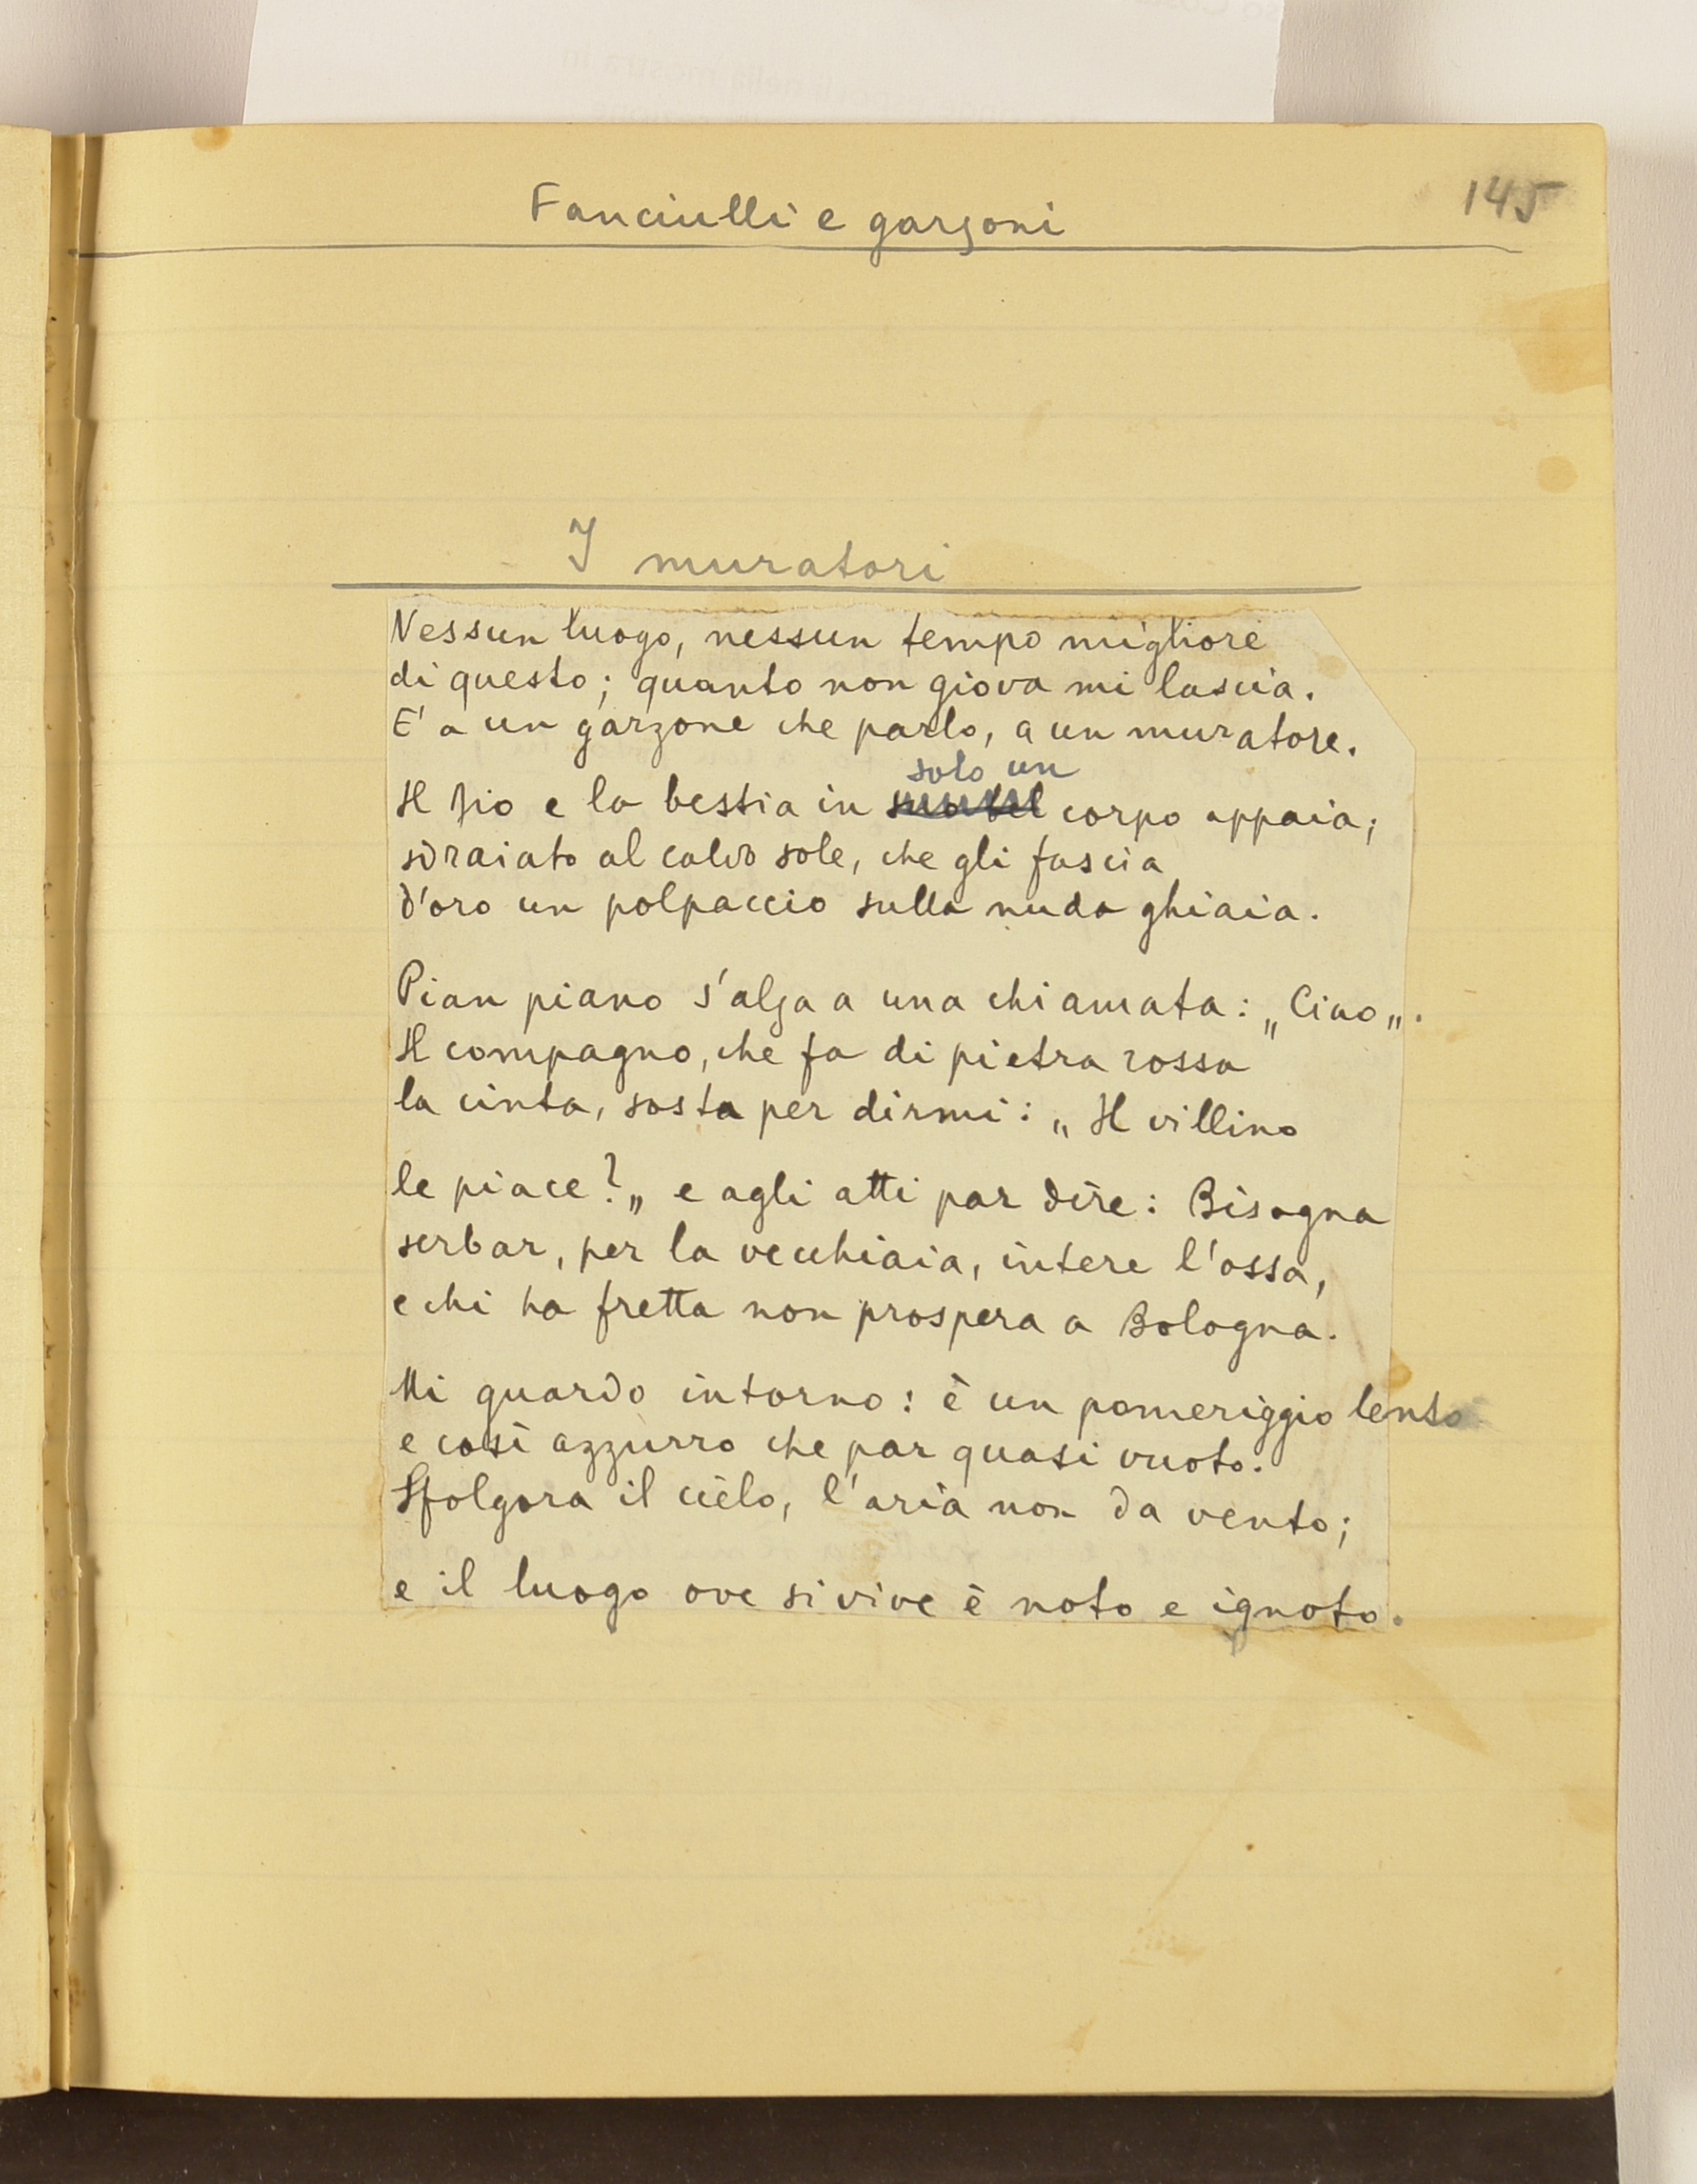 145
Fanciulli e garzoni
I muratori
Nessun luogo, nessun tempo migliore
di questo; quanto non giova mi lascia.
E' a un garzone che parlo, a un muratore.
solo un
Il zio e la bestia in corpo appaia;
sdraiato al caldo sole, che gli fascia
d'oro un polpaccio sulla nuda ghiaia.
Pian piano s'alza a una chiamata: „Ciao„.
Il compagno, che fa di pietra rossa
la cinta, sosta per dirmi: „Il villino
le piace?„ e agli atti par dire: Bisogna
serbar, per la vecchiaia, intere l'ossa,
e chi ha fretta non prospera a Bologna.
Mi guardo intorno: è un pomeriggio lento
e così azzurro che par quasi vuoto.
Sfolgora il cielo, l'aria non da vento;
e il luogo ove si vive è noto e ignoto.